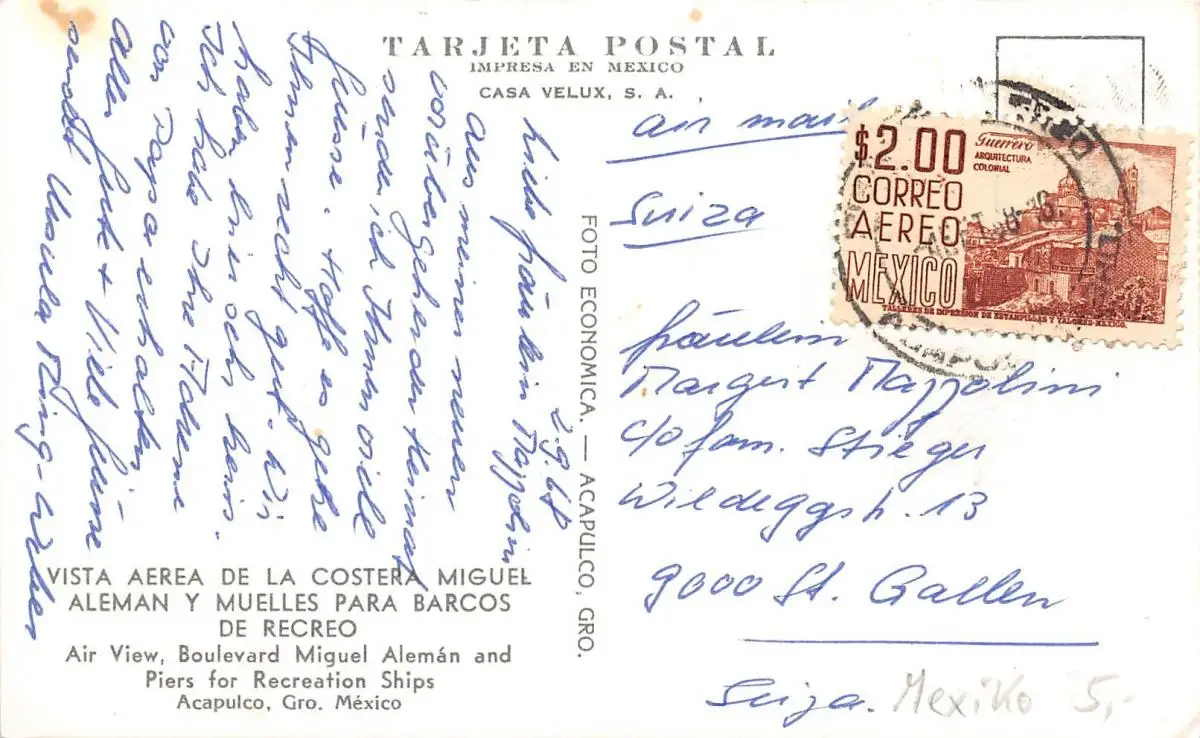 TARJETA POSTAL
IMPRESA EN MEXICO
CASA VELUX, S. A.
2.9.68
Liebe Fräulein Mazzolini
Aus meiner neuen
vorübergehenden Heimat
sende ich Ihnen viele
Grüsse. Hoffe es gehe
Ihnen recht gut. Wir
haben es sehr heiss.
Ich habe Ihre Adresse
von Papa erhalten
Alles Gute + Viele Grüsse
sendet Ursula Ring-Weber
VISTA AEREA DE LA COSTERA MIGUEL
ALEMAN Y MUELLES PARA BARCOS
DE RECREO
Air View, Boulevard Miguel Alemán and
Piers for Recreation Ships
Acapulco, Gro. México
FOTO ECONOMICA. — ACAPULCO, GRO.
air mail
Suiza
$2.00
CORREO
AEREO
MEXICO
Guerrero
ARQUITECTURA
COLONIAL
TALLERES DE IMPRESION DE ESTAMPILLAS Y VALORES-MEXICO.
Fräulein
Margrit Mazzolini
c/o Fam. Stieger
Wildeggstr. 13
9000 St. Gallen
Suiza.
Mexiko 5,-